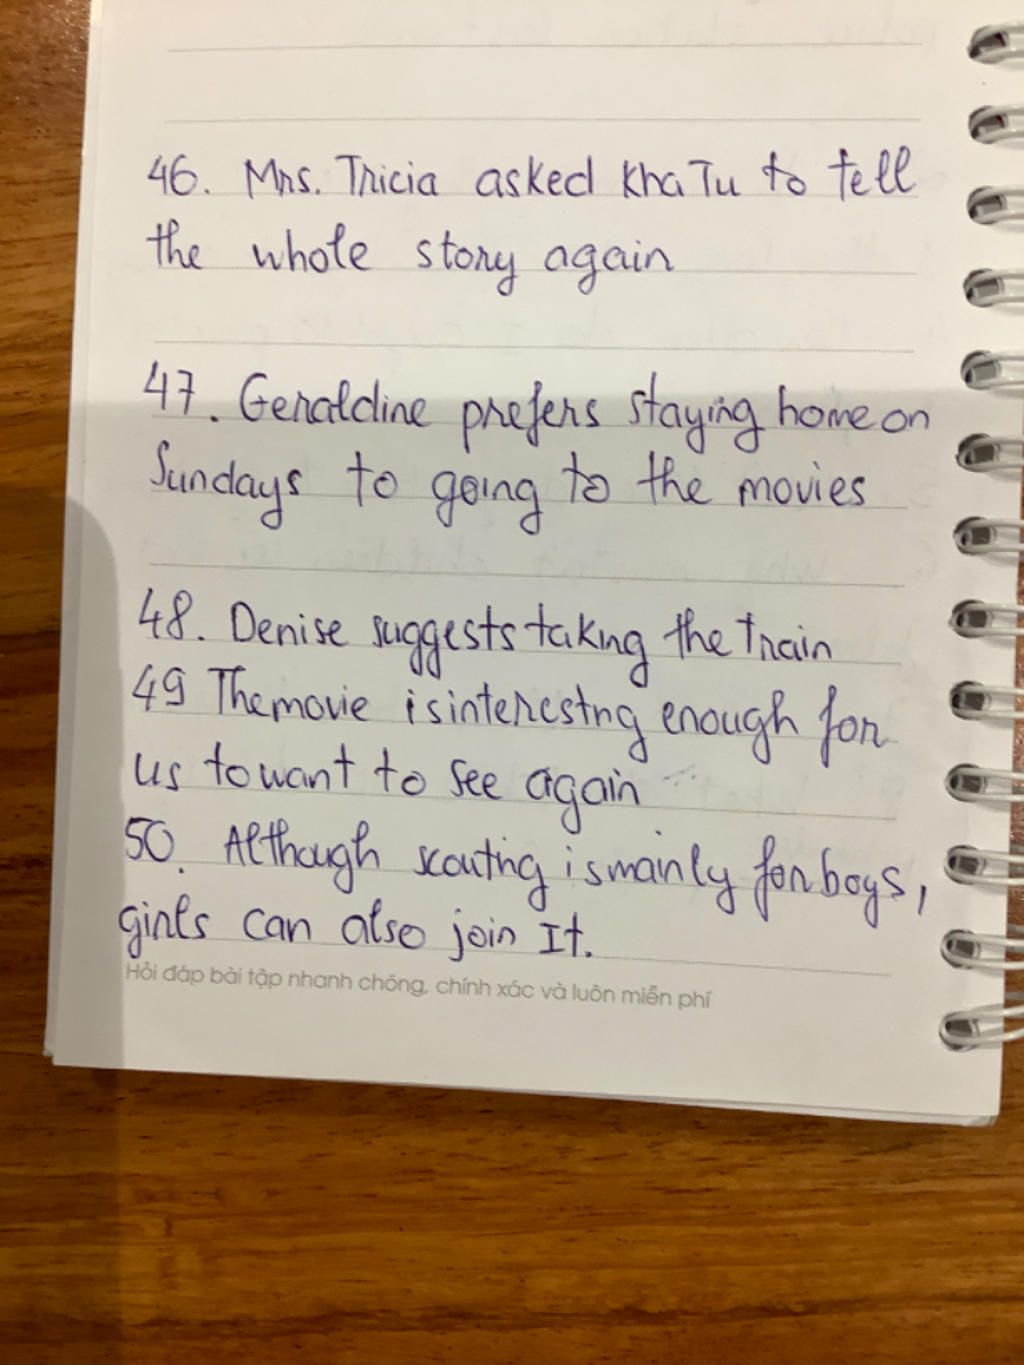 46. Mrs. Tricia asked Kha Tu to tell
the whole story again
47. Geraldine prefers staying home on
Sundays to going to the movies
48. Denise suggests taking the train
49 The movie is interesting enough for
us to want to see again
50. Although scouting is mainly for boys,
girls can also join It.
Hỏi đáp bài tập nhanh chóng, chính xác và luôn miễn phí